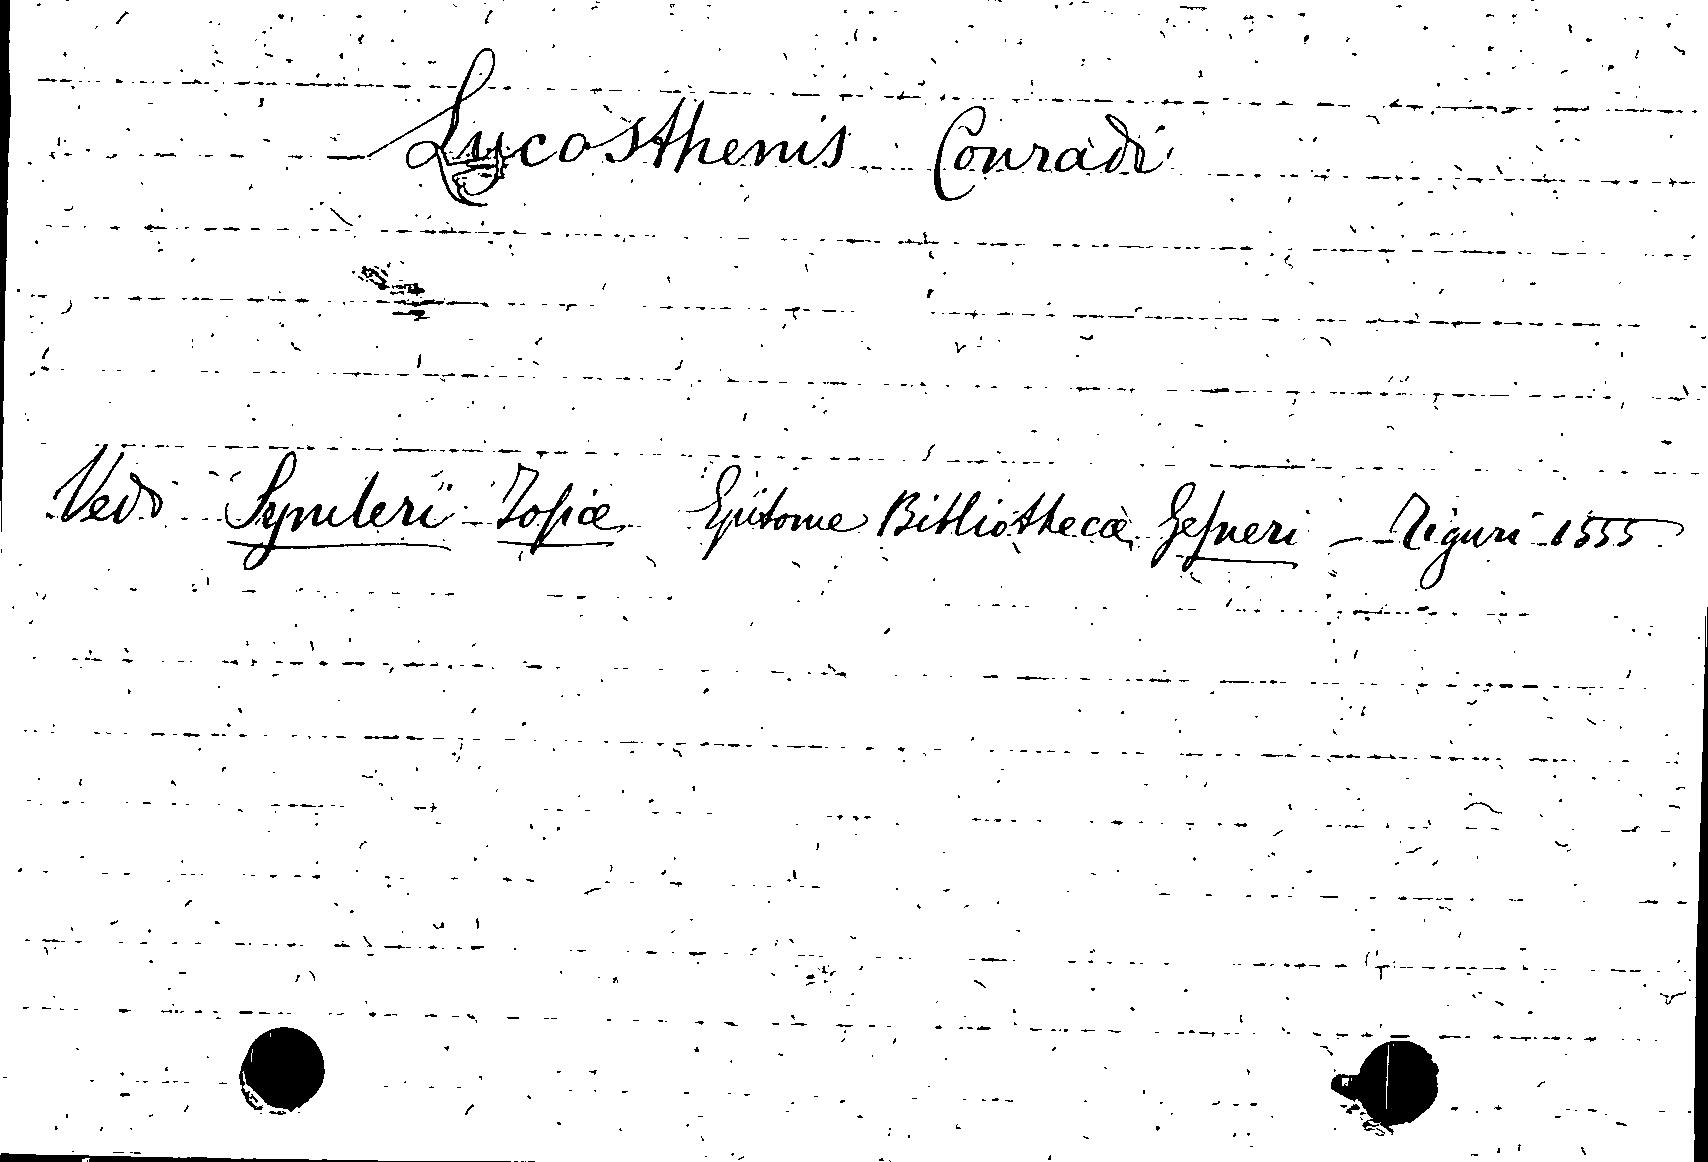 Lycosthenis Conradi
Vedi Symleri Josiæ Epitome Bibliothecæ Gesneri - Tiguri 1555